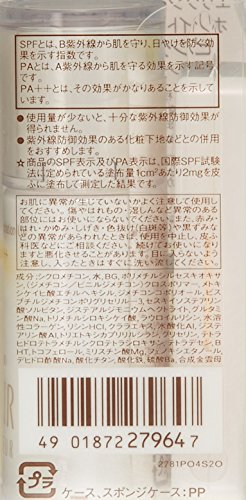 SPFとは、B紫外線から肌を守り、日やけを防ぐ効
果を示す指数です。
PAとは、A紫外線から肌を守る効果を示す記号
です。
PA++とは、その効果がかなりあることを示し
ます。
●使用量が少ないと、十分な紫外線防御効果が
得られません。
●紫外線防御効果のある化粧下地などとの併用
をおすすめします。
☆商品のSPF表示及びPA表示は、国際SPF試験
法に定められている塗布量1cm²あたり2mgを皮
ふに塗布して測定した結果です。
お肌に異常が生じていないかよく注意してご使
用ください。傷やはれもの・湿しんなど異常のある
部位にはお使いにならないでください。また赤み・
はれ・かゆみ・しげき・色抜け(白斑等)や黒ずみな
どの異常があらわれたときは、使用を中止し、皮ふ
科医などにご相談ください。お使い続けになり
ますと悪化させることがあります。目に入らないよ
う注意し、入ったときはすぐに洗い流してください。
成分:シクロメチコン、水、BG、ポリメチルシルセスキオキサ
ン、(ジメチコン/ビニルジメチコン)クロスポリマー、メトキ
シケイヒ酸エチルヘキシル、ジメチコン、オキシ
ジメチルシリル
エチルジメチコン
イソステアリン
酸ソルビタン、
グルタミ
ン酸Na、トリメチルシロキシケイ酸、ラウロイルリシン、水溶
性コラーゲン、リシンHCl、クララエキス、水酸化Al、ジステ
アリン酸Al、
BHT、トコフェロール、ミリスチン酸Mg、フェノキシエタノール、
デヒドロ酢酸Na、酸化チタン、酸化鉄、硫酸Ba、合成金雲母
4 901872 279647
2781PO4S2O
プラ
ケース、スポンジケース:PP